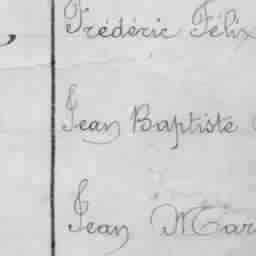 Frédéric Félix
Jean Baptiste
Jean Mar